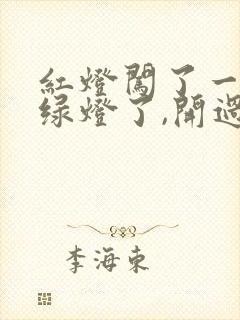 紅燈闖了一
绿燈了,開過
李海東